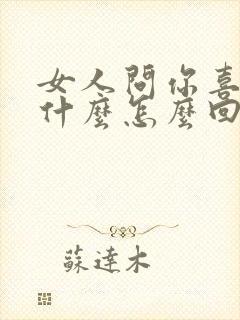 女人問你喜
什麼怎麼回
蘇達木